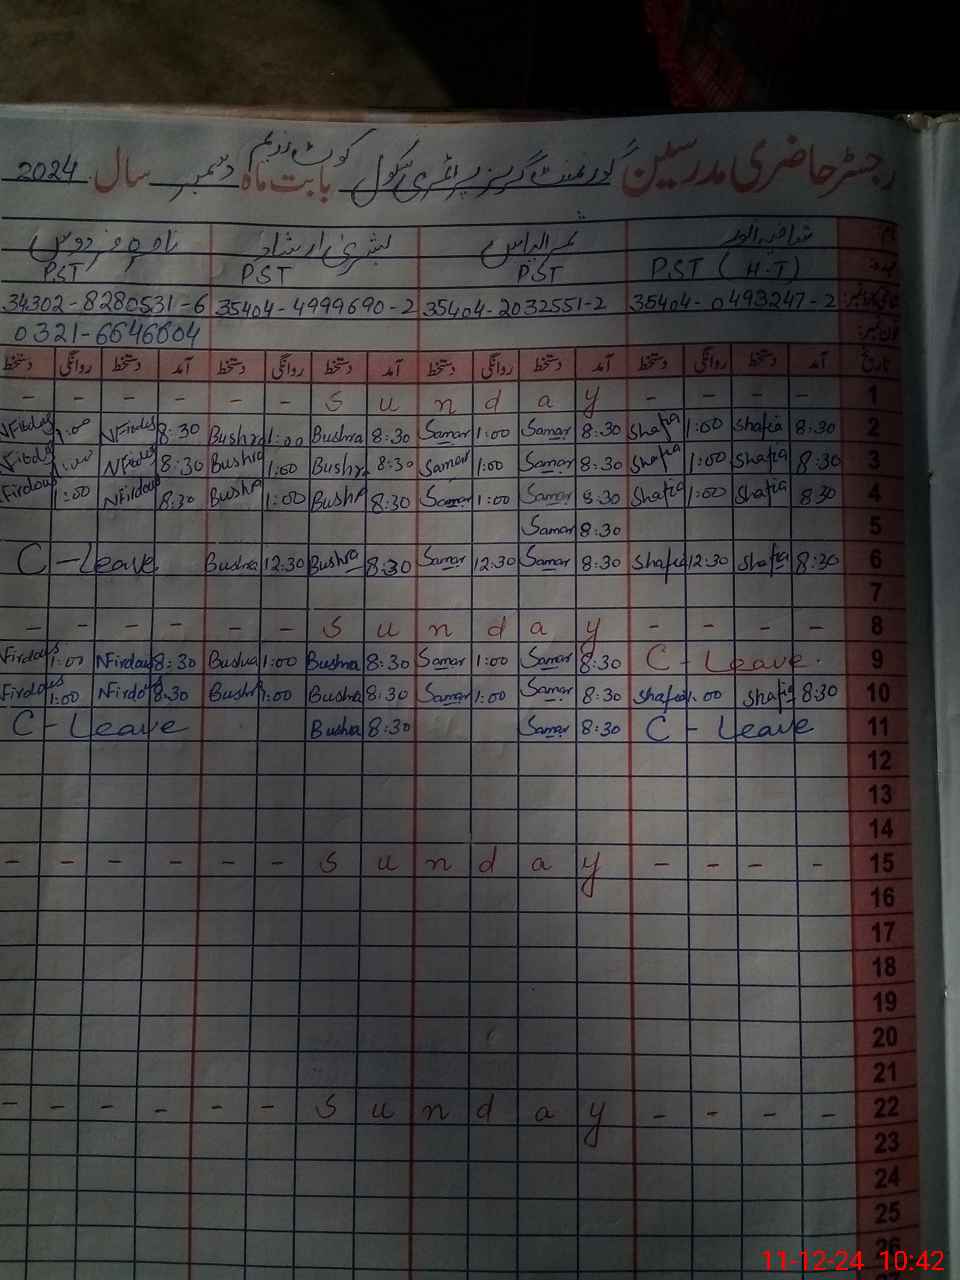 رجسٹر حاضری مدرسین گورنمنٹ گرلز پرائمری سکول کوٹ رحیم بابت ماہ دسمبر سال 2024
نام: ثمر الیاس بشریٰ ارشاد
عہدہ: PST (H.T) PST PST PST
35404-0493247-2 35404-2032551-2 35404-4999690-2 34302-8280531-6
0321-6646604
تاریخ آمد دستخط روانگی دستخط آمد دستخط روانگی دستخط آمد دستخط روانگی دستخط آمد دستخط روانگی دستخط
1 - - - - Sunday - - - - - -
2 8:30 Shafia 1:00 Shafia 8:30 Samar 1:00 Samar 8:30 Bushra 1:00 Bushra 8:30 NFirdous 1:00 NFirdous
3 8:30 Shafia 1:00 Shafia 8:30 Samar 1:00 Samar 8:30 Bushra 1:00 Bushra 8:30 NFirdous 1:00 NFirdous
4 8:30 Shafia 1:00 Shafia 8:30 Samar 1:00 Samar 8:30 Bushra 1:00 Bushra 8:30 NFirdous 1:00 Firdous
5 8:30 Samar
6 8:30 Shafia 12:30 Shafia 8:30 Samar 12:30 Samar 8:30 Bushra 12:30 Bushra C-Leave
7
8 - - - - Sunday - - - - - -
9 C-Leave. 8:30 Samar 1:00 Samar 8:30 Bushra 1:00 Bushra 8:30 NFirdous 1:00 Firdous
10 8:30 Shafia 1:00 Shafia 8:30 Samar 1:00 Samar 8:30 Bushra 1:00 Bushra 8:30 NFirdous 1:00 Firdous
11 C-Leave 8:30 Samar 8:30 Bushra C-Leave
12
13
14
15 - - - - Sunday - - - - - -
16
17
18
19
20
21
22 - - - - Sunday - - - - - -
23
24
25
26
11-12-24 10:42